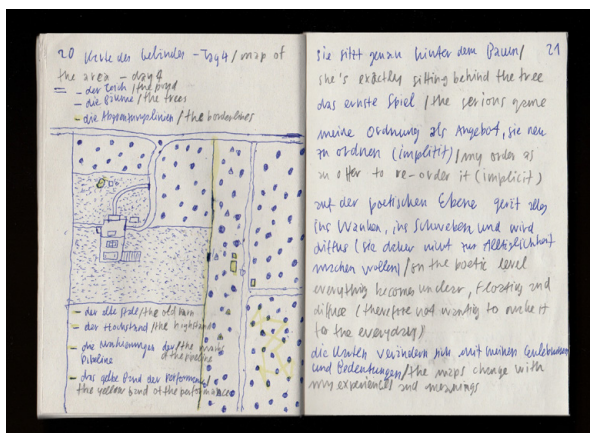 20 Karte des Geländes - Tag 4 / map of
the area - day 4
- der Teich / the pond
- die Bäume / the trees
- die Abgrenzungslinien / the borderlines
- der alte Stall / the old barn
- der Hochstand / the highstand
- die Markierungen der / the marks
Pipeline of the pipeline
- das gelbe Band der Performance /
the yellow band of the performance
sie sitzt genau hinter dem Baum / 21
she's exactly sitting behind the tree
das ernste Spiel / the serious game
meine Ordnung als Angebot, sie neu
zu ordnen (implizit) / my order as
an offer to re-order it (implicit)
auf der poetischen Ebene gerät alles
ins Wanken, ins Schweben und wird
diffus (sie daher nicht zur Alltäglichkeit
machen wollen) / on the poetic level
everything becomes unclear, floating and
diffuse (therefore not wanting to make it
to the everyday)
die Karten verändern sich mit meinen Erlebnissen
und Bedeutungen / the maps change with
my experiences and meanings